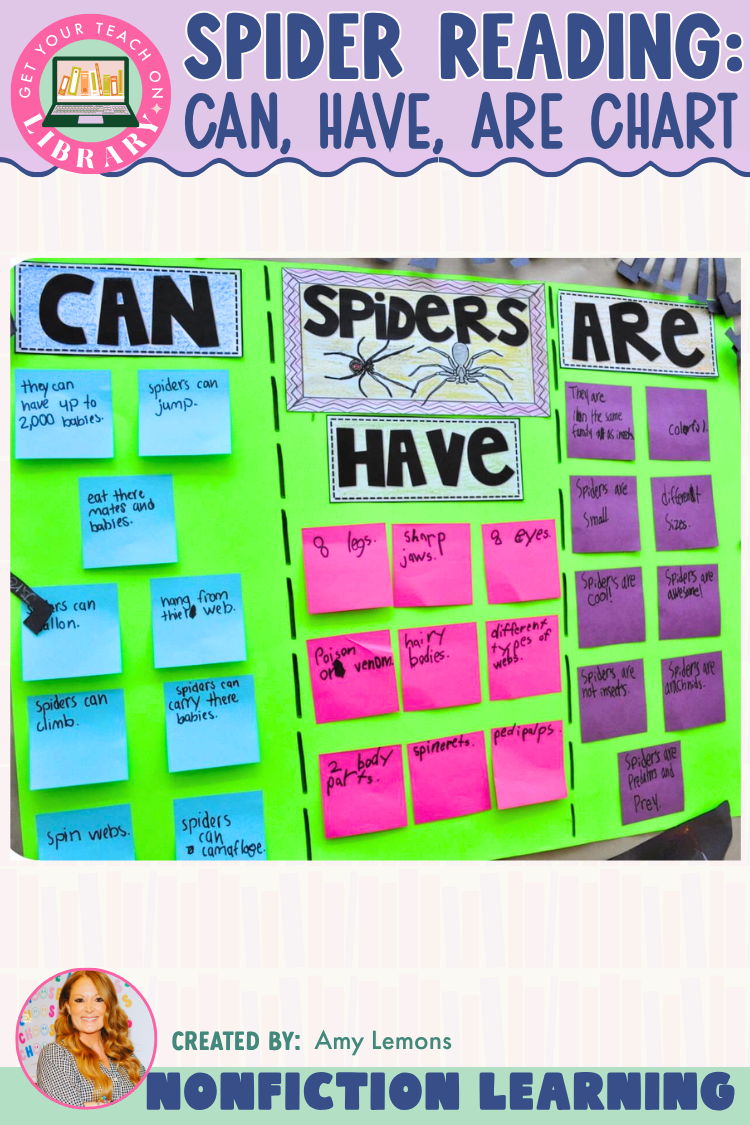 GET YOUR TEACH ON
LIBRARY
SPIDER READING:
CAN, HAVE, ARE CHART
CAN
they can
have up to
2,000 babies.
spiders can
jump.
eat there
mates and
babies.
can
hang from
web.
spiders can
climb.
spiders can
carry there
babies.
spin webs.
spiders
can
camafloge.
SPiDERS
HAVE
8 legs.
sharp
jaws.
8 eyes.
Poison
or venom.
hairy
bodies.
different
types of
webs.
2 body
parts.
spinerets.
pedipalps.
ARe
They are
in the same
family as insects
color(s).
Spiders are
Small
different
Sizes.
Spiders are
cool!
Spiders are
awesome!
Spiders are
not insects.
Spiders are
arachnids.
Spiders are
and
Prey.
CREATED BY: Amy Lemons
NONFICTION LEARNING